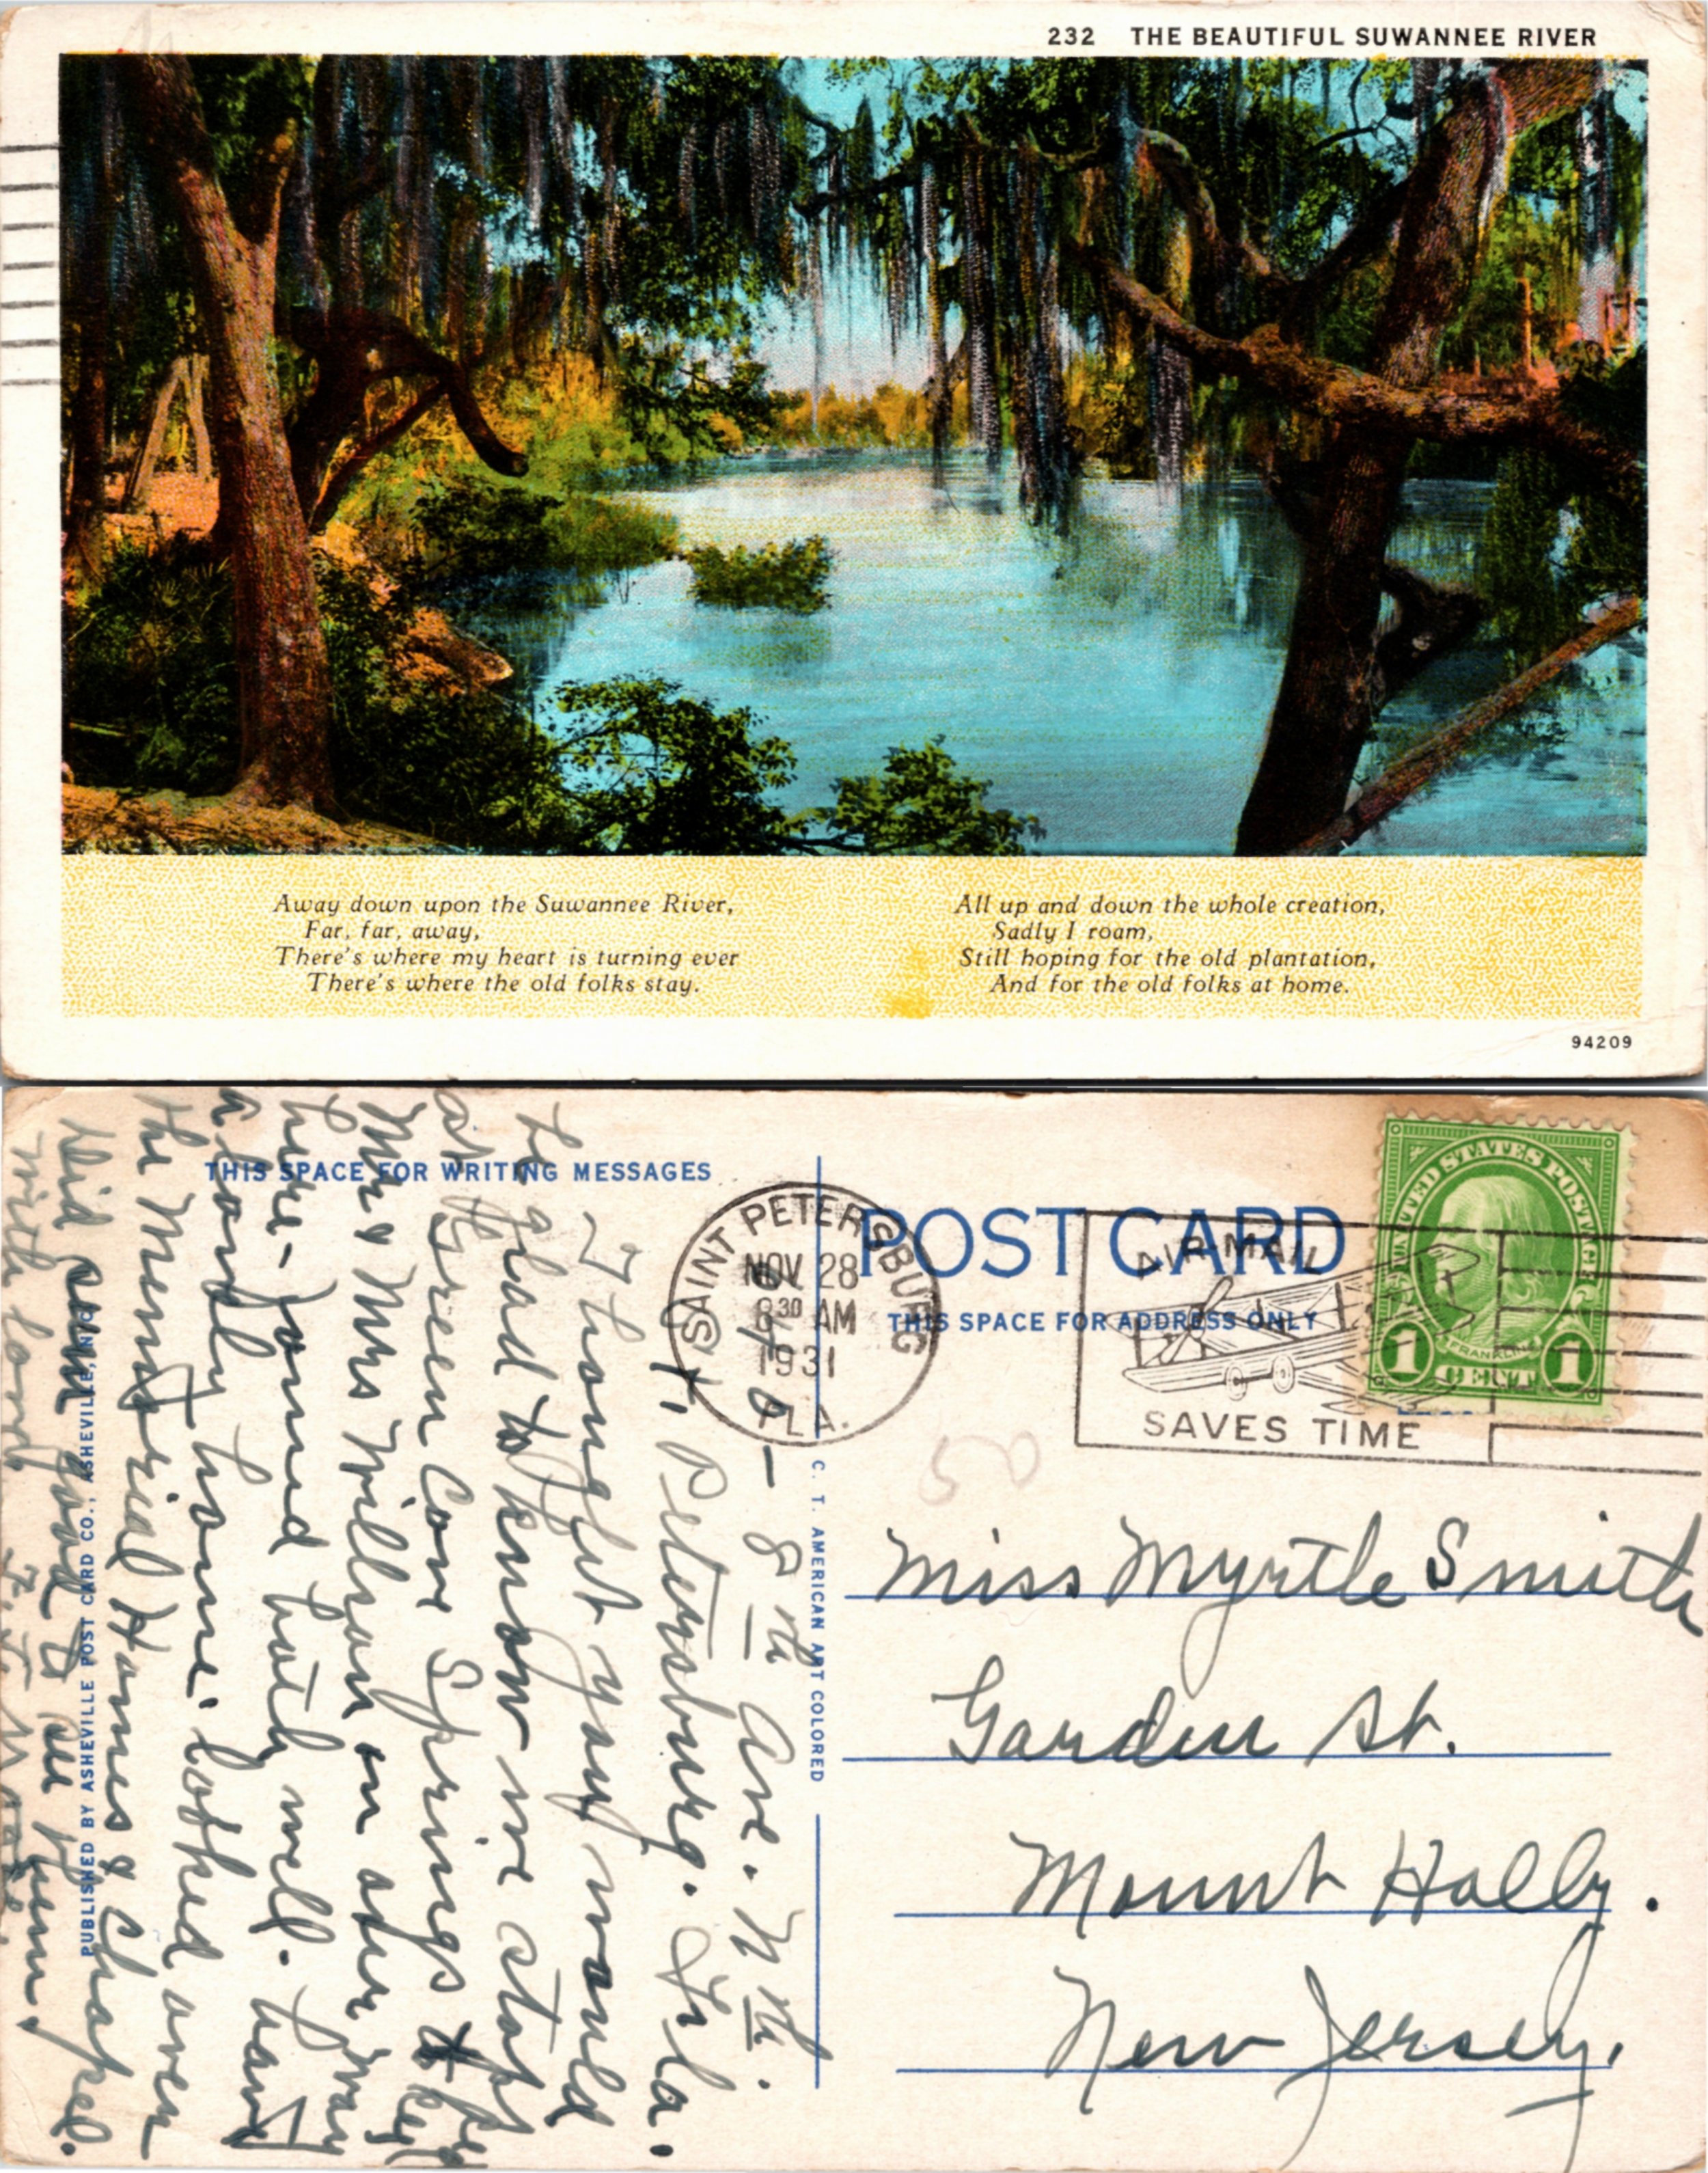 232 THE BEAUTIFUL SUWANNEE RIVER
Away down upon the Suwannee River,
Far, far, away,
There's where my heart is turning ever
There's where the old folks stay.
All up and down the whole creation,
Sadly I roam,
Still hoping for the old plantation,
And for the old folks at home.
94209
THIS SPACE FOR WRITING MESSAGES
POST CARD
THIS SPACE FOR ADDRESS ONLY
SAINT PETERSBURG
NOV 28
8 30 AM
1931
FLA.
AIR MAIL
SAVES TIME
UNITED STATES POSTAGE
FRANKLIN
1 CENT 1
C. T. AMERICAN ART COLORED
PUBLISHED BY ASHEVILLE POST CARD CO., ASHEVILLE, N.C.
50
- 8th Ave. N th.
St. Petersburg. Fla.
I thought you would
be glad to know we stopt
at Green Cove Springs to see
Mr & Mrs Willson on our way
here - found both well. have
a lovely home. looked over
the Memorial Homes & Chapel.
Did seem good to see them.
with love
Miss Myrtle Smith
Garden St.
Mount Holly.
New Jersey.